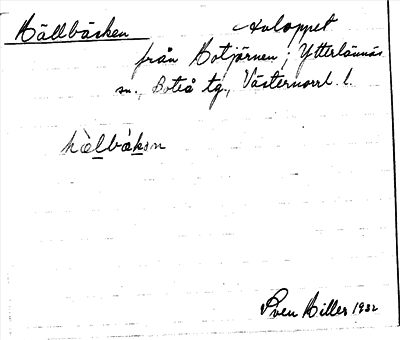 Källbäcken Avloppet
från Kotjärnen; Ytterlännäs
sn., Boteå tg., Västernorrl. l.
kälbäkən
Sven Hiller 1932